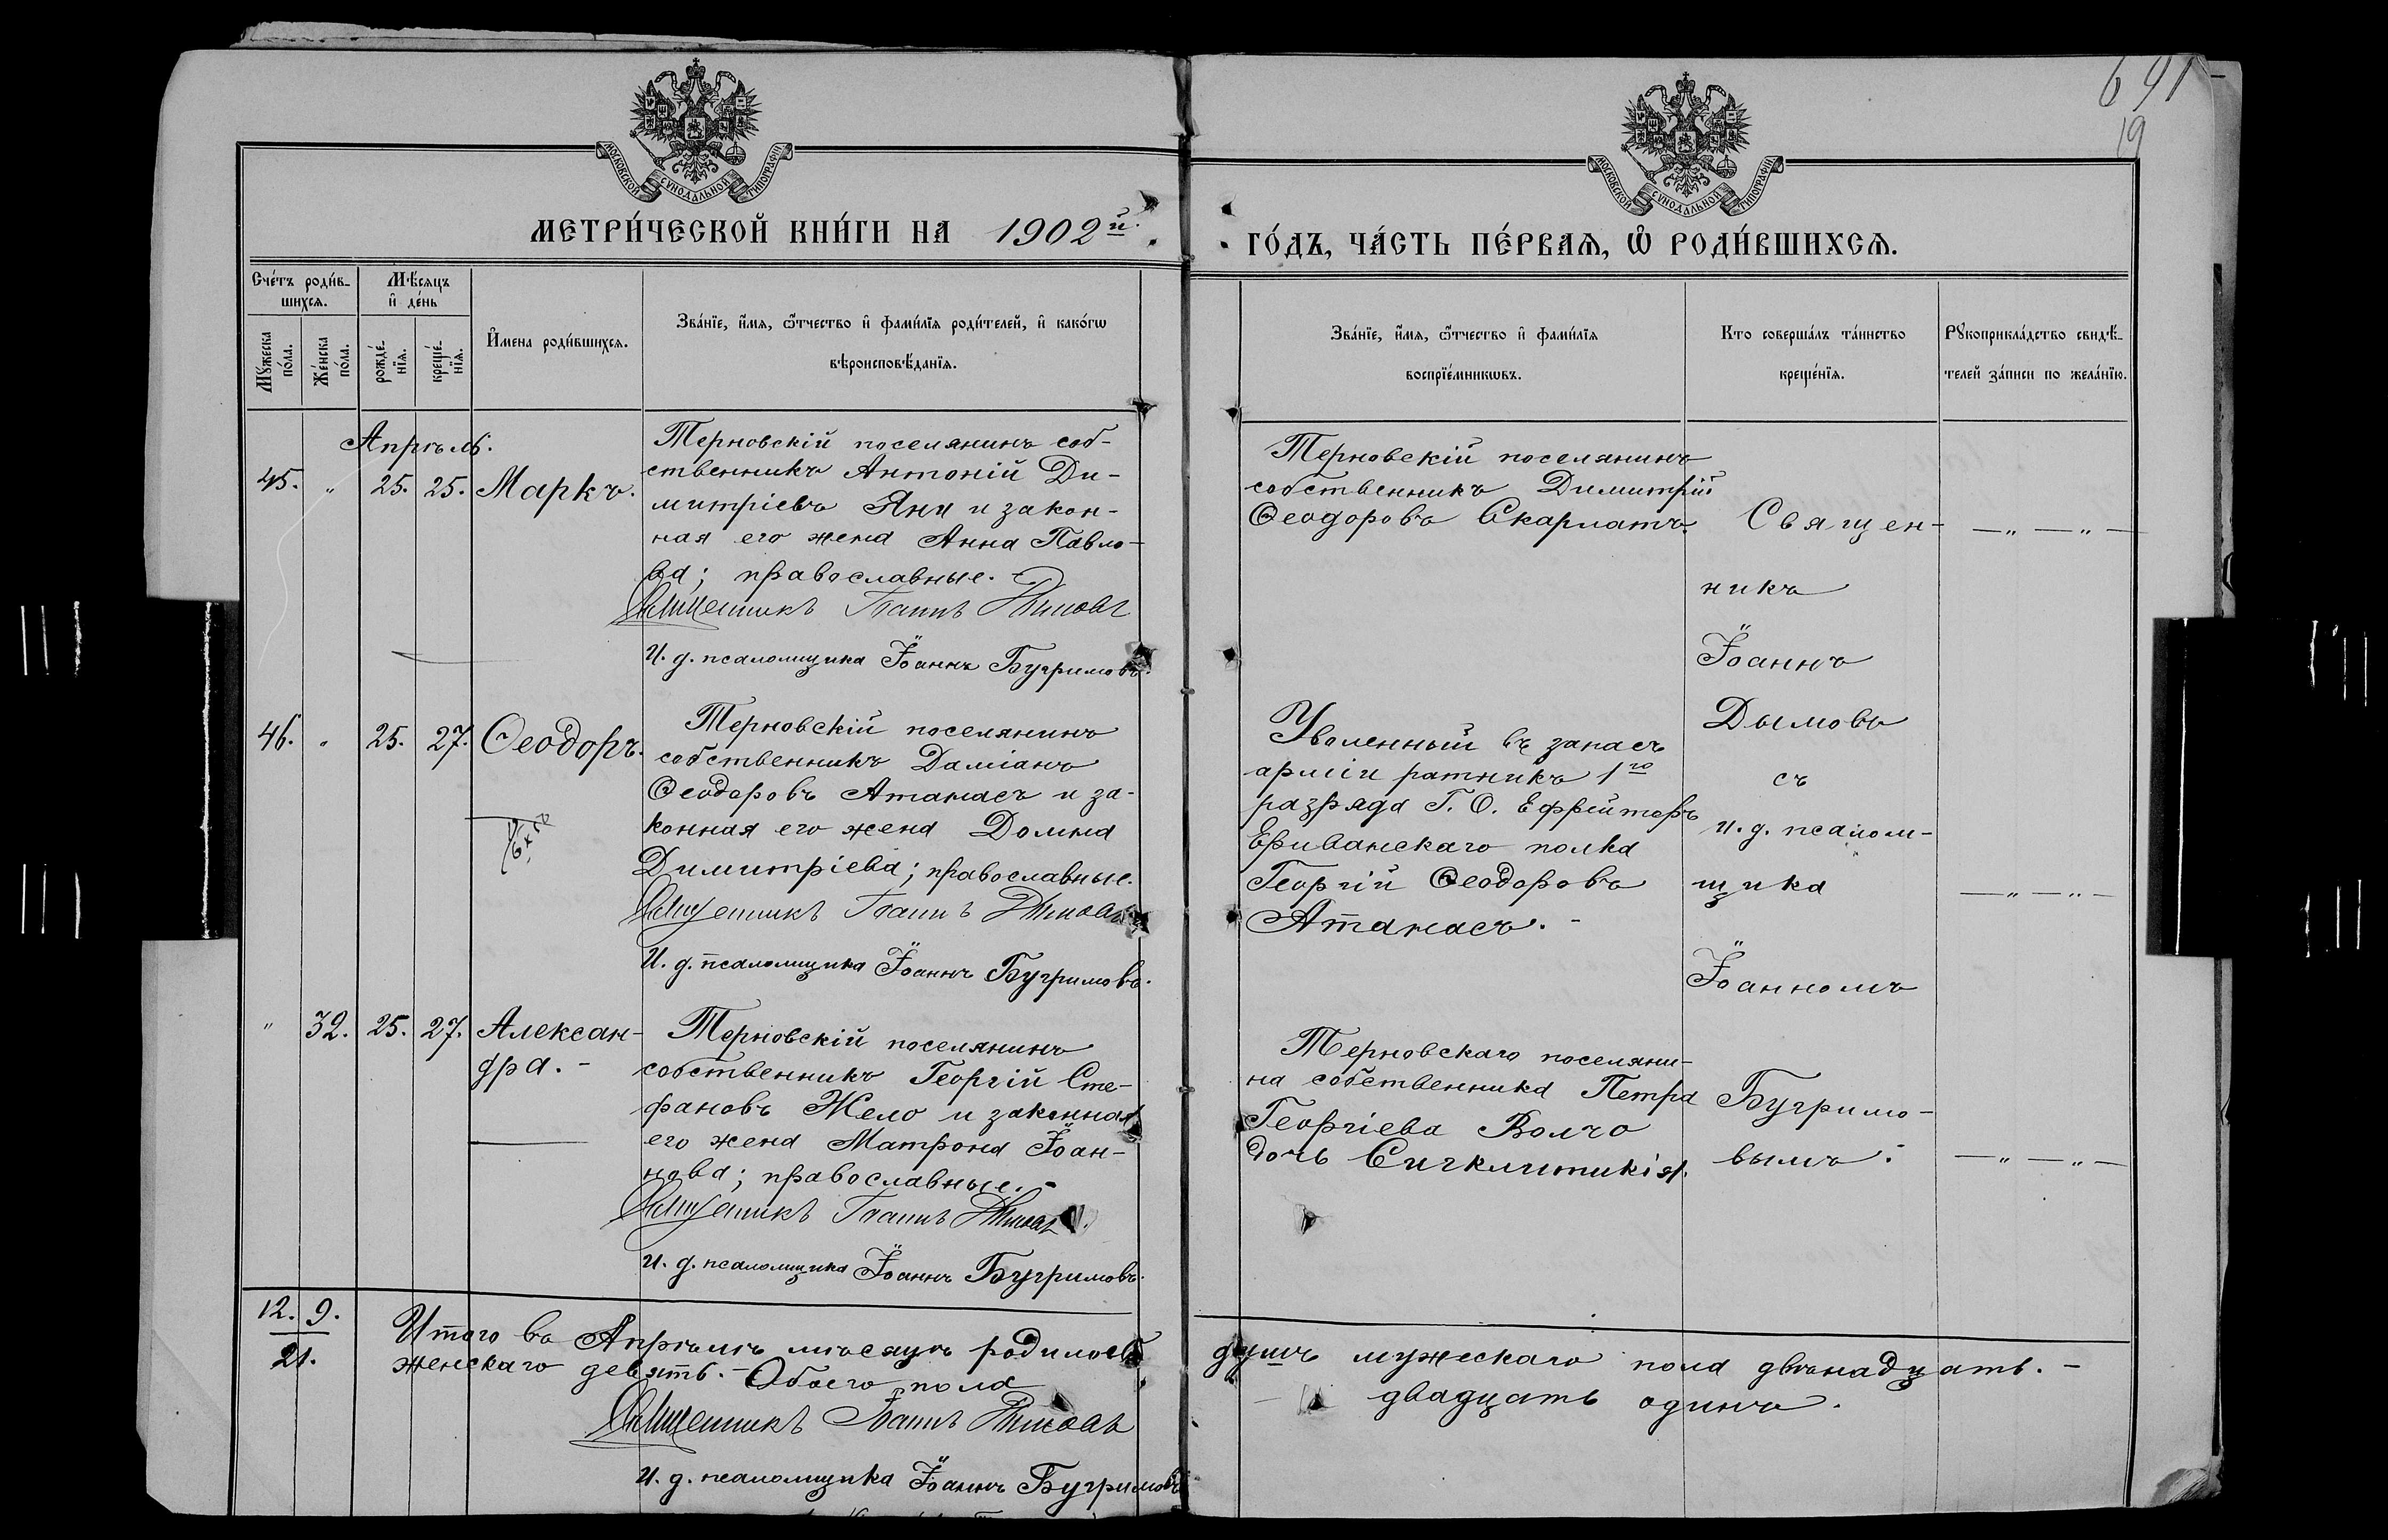 691
19
МОСКОВСКОЙ СУНОДАЛЬНОЙ ТИПОГРАФІИ
МОСКОВСКОЙ СУНОДАЛЬНОЙ ТИПОГРАФІИ
МЕТРИ́ЧЕСКОЙ КНИ́ГИ НА 1902й.
ГО́ДЪ, ЧА́СТЬ ПЕ́РВАЯ, Ѡ҆ РОДИ́ВШИХСЯ.
Сче́тъ роди́в-
шихся.
Мѣ́сяцъ
и҆ де́нь
Мꙋжеска
по́ла.
Же́нска
по́ла.
рожде́-
нїя.
креще́-
нїя.
И҆́мена роди́вшихся.
Зва́нїе, и҆́мя, ѻ҆́тчество и҆ фами́лїя роди́телей, и҆ како́гѡ
вѣроисповѣ́данїя.
Зва́нїе, и҆́мя, ѻ҆́тчество и҆ фами́лїя
воспрїе́мникѡвъ.
Кто соверша́лъ та́инство
креще́нїя.
Рꙋкоприкла́дство свидѣ́-
телей за́писи по жела́нїю.
Апрѣль:
45. " 25. 25. Маркъ.
Терновскій поселянинъ соб-
ственникъ Антоній Ди-
митріевъ Яни и закон-
ная его жена Анна Павло-
ва; православные. -
Священникъ Іоаннъ Дымовъ
И. д. псаломщика Іоаннъ Бугримовъ.
Терновскій поселянинъ
собственникъ Димитрій
Ѳеодоровъ Скарлатъ.
Священ-
никъ
Іоаннъ
Дымовъ
съ
и. д. псалом-
щика
Іоанномъ
Бугримо-
вымъ.
— " — " —
46. " 25. 27. Ѳеодоръ.
Терновскій поселянинъ
собственникъ Даміанъ
Ѳеодоровъ Атанасъ и за-
конная его жена Домна
Димитріева; православные.
Священникъ Іоаннъ Дымовъ
И. д. псаломщика Іоаннъ Бугримовъ.
Уволенный въ запасъ
арміи ратникъ 1го
разряда Г. О. Ефрейторъ
Ериванскаго полка
Георгій Ѳеодоровъ
Атанасъ. -
— " — " —
" 32. 25. 27. Алексан-
дра. -
Терновскій поселянинъ
собственникъ Георгій Сте-
фановъ Жело и законная
его жена Матрона Іоан-
нова; православные. -
Священникъ Іоаннъ Дымовъ.
И. д. псаломщика Іоаннъ Бугримовъ.
Терновскаго поселяни-
на собственника Петра
Георгіева Волчо
дочь Сигклитикія.
— " — " —
12. 9.
21.
Итого въ Апрѣлѣ мѣсяцѣ родилось
душъ мужескаго пола двѣнадцать. -
женскаго девять. - Обоего пола
двадцать одинъ.
Священникъ Іоаннъ Дымовъ
И. д. псаломщика Іоаннъ Бугримовъ